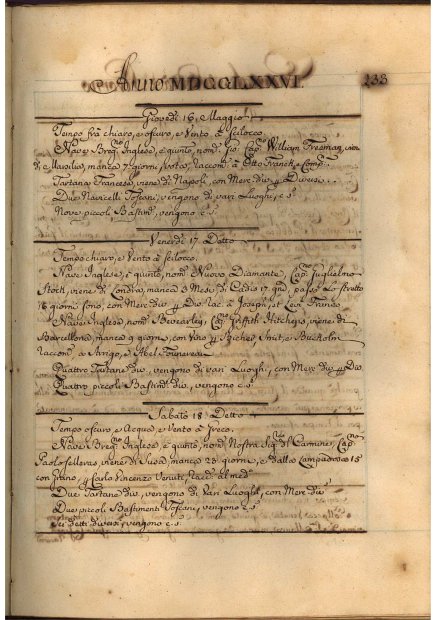 Anno MDCCLXXXVI. 233
Giovedì 16, Maggio
Tempo frà chiaro, e oscuro, e Vento à Scilocco.
Nave Breg.º Inglese, e quinto, nom.ª Gio: Cap.º William Freeman, vien
di Marsilia, manca 7. giorni, scotto, raccom.ª à Otto Franck, e Comp.
Tartana Francese, viene di Napoli, con Merc. div. p. Diversi
Due Navicelli Toscani, vengono di vari Luoghi, e s.
Nove piccoli Bastim.ti, vengono e s.
Venerdì 17. Detto
Tempo chiaro, e Vento à Scilocco.
Nave Inglese, e quinto, nom.ª Nuovo Diamante, Cap.º Guglielmo
viene di Londra, manca 2 Mesi, di Cadis 17. gni, passò Lo stretto
18 giorni sono, con Merc. div. p. Div. rac. à Joseph, et Levi Franco
Nave Inglese, nom.ª Cap.º Griffith Hitchens, viene di
Barcellona, manca 9. giorni, con Vino p.
raccom.ª à Arrigo, e Abel Fonnereau
Quattro Tartane div. vengono di vari Luoghi, con Merc. div. p. Div.
Quattro piccoli Bastim.ti div. vengono e s.
Sabato 18. Detto
Tempo oscuro, e Acqua, e Vento à Greco.
Nave Breg.no Inglese, e quinto, nom.ª Nostra Sig.ra del Carmine, Cap.no
viene di Susa, manca 28. giorni, e dalla 15
con grano, p. Carlo Vincenzo Venuti, racc. al med.
Due Tartane div. vengono di Vari Luoghi, con Merc. div.
Due piccoli Bastimenti Toscani, vengono e s.
Sei Detti diversi, vengono e s.